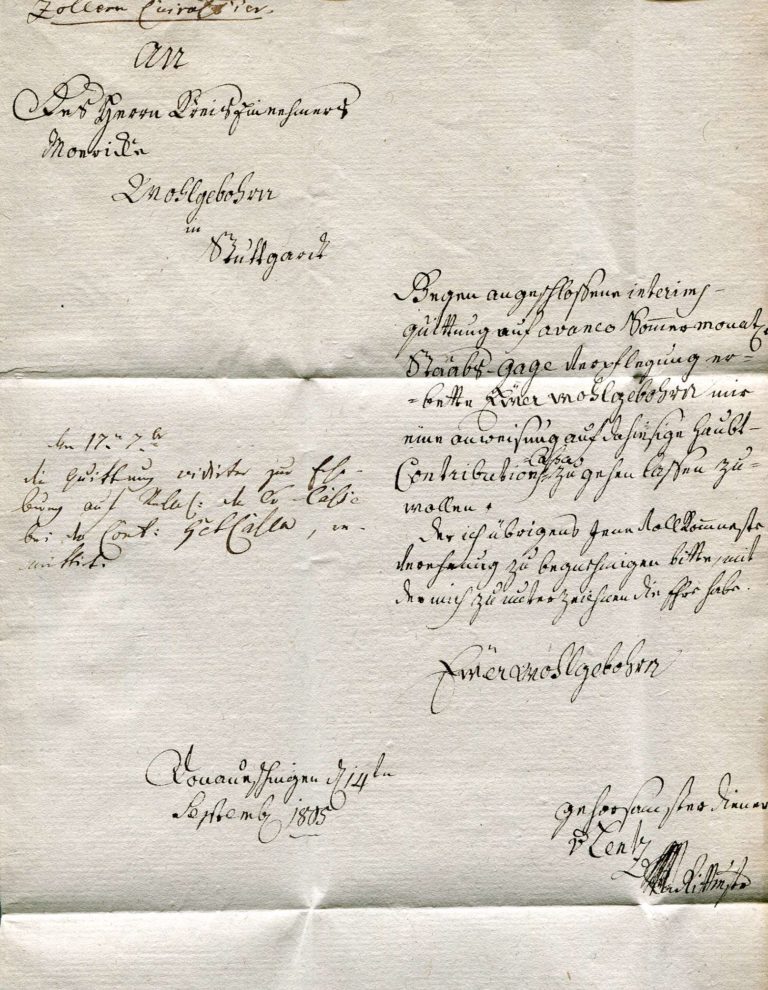 Zollern Cuirassier.
An
Des Herrn Kreis Einnehmers
Moericke
Wohlgebohrn
in
Stuttgardt
Gegen angeschloßene interims-
quittung auf avance Sommer monat
Staabs-Gage Verpflegung er-
-bette Euer wohlgebohrn mir
eine anweisung auf dahiesige Haubt-
Contributions Cassa zu gehen lassen zu-
wollen.
Der ich übrigens jene Vollkomneste
Verehrung zu begnehmigen bitte, mit
der mich zu unterzeichnen die Ehre habe.
Euer wohlgebohrn
den 17. 7br
die quittung zur Erhe-
bung auf
bei der Cont: Cassa, re-
mittirt.
Donaueschingen d 14ten
Septemb 1805
gehorsamster diener
v Lentz
Rittmstr